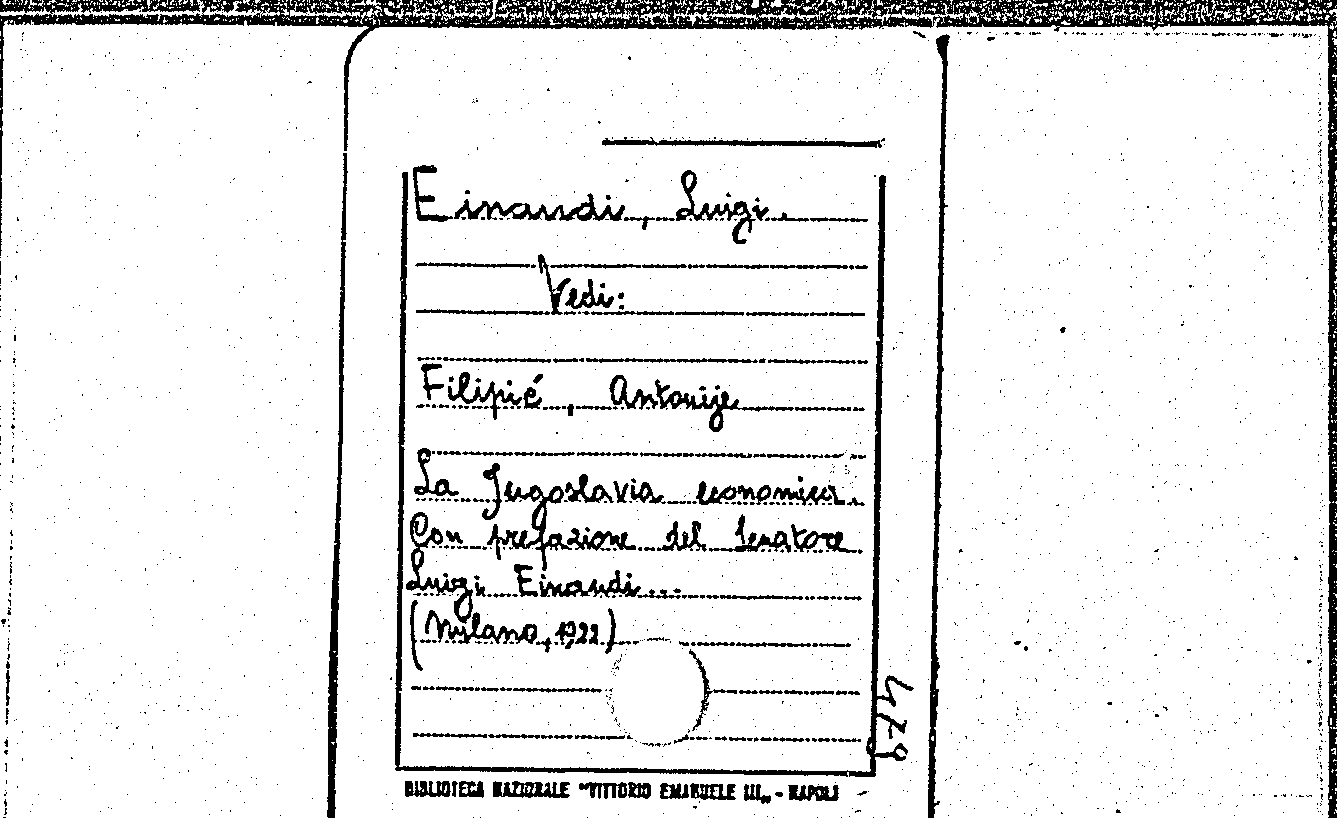 Einaudi, Luigi.
Vedi:
Filipić, Antonije
La Jugoslavia economica.
Con prefazione del Senatore
Luigi Einaudi...
(Milano, 1922)
479
BIBLIOTECA NAZIONALE "VITTORIO EMANUELE III„ - NAPOLI